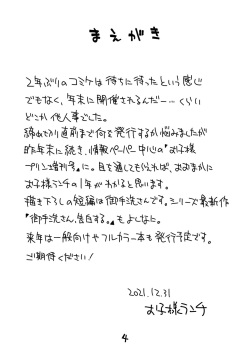 まえがき
2年ぶりのコミケは待ちに待ったという感じ
でもなく、年末に開催されるんだー…くらい
どこか他人事でした。
締め切り直前まで何を発行するか悩みましたが
昨年末に続き、情報ペーパー中心の『お子様
プリン増刊号』に。目を通してもらえれば、おおまかに
お子様ランチの1年がわかると思います。
描き下ろしの短編は御手洗さんです。シリーズ最新作
『御手洗さん、告白する。』もよしなに。
来年は一般向けやフルカラー本も発行予定です。
ご期待ください！
2021.12.31
お子様ランチ
4